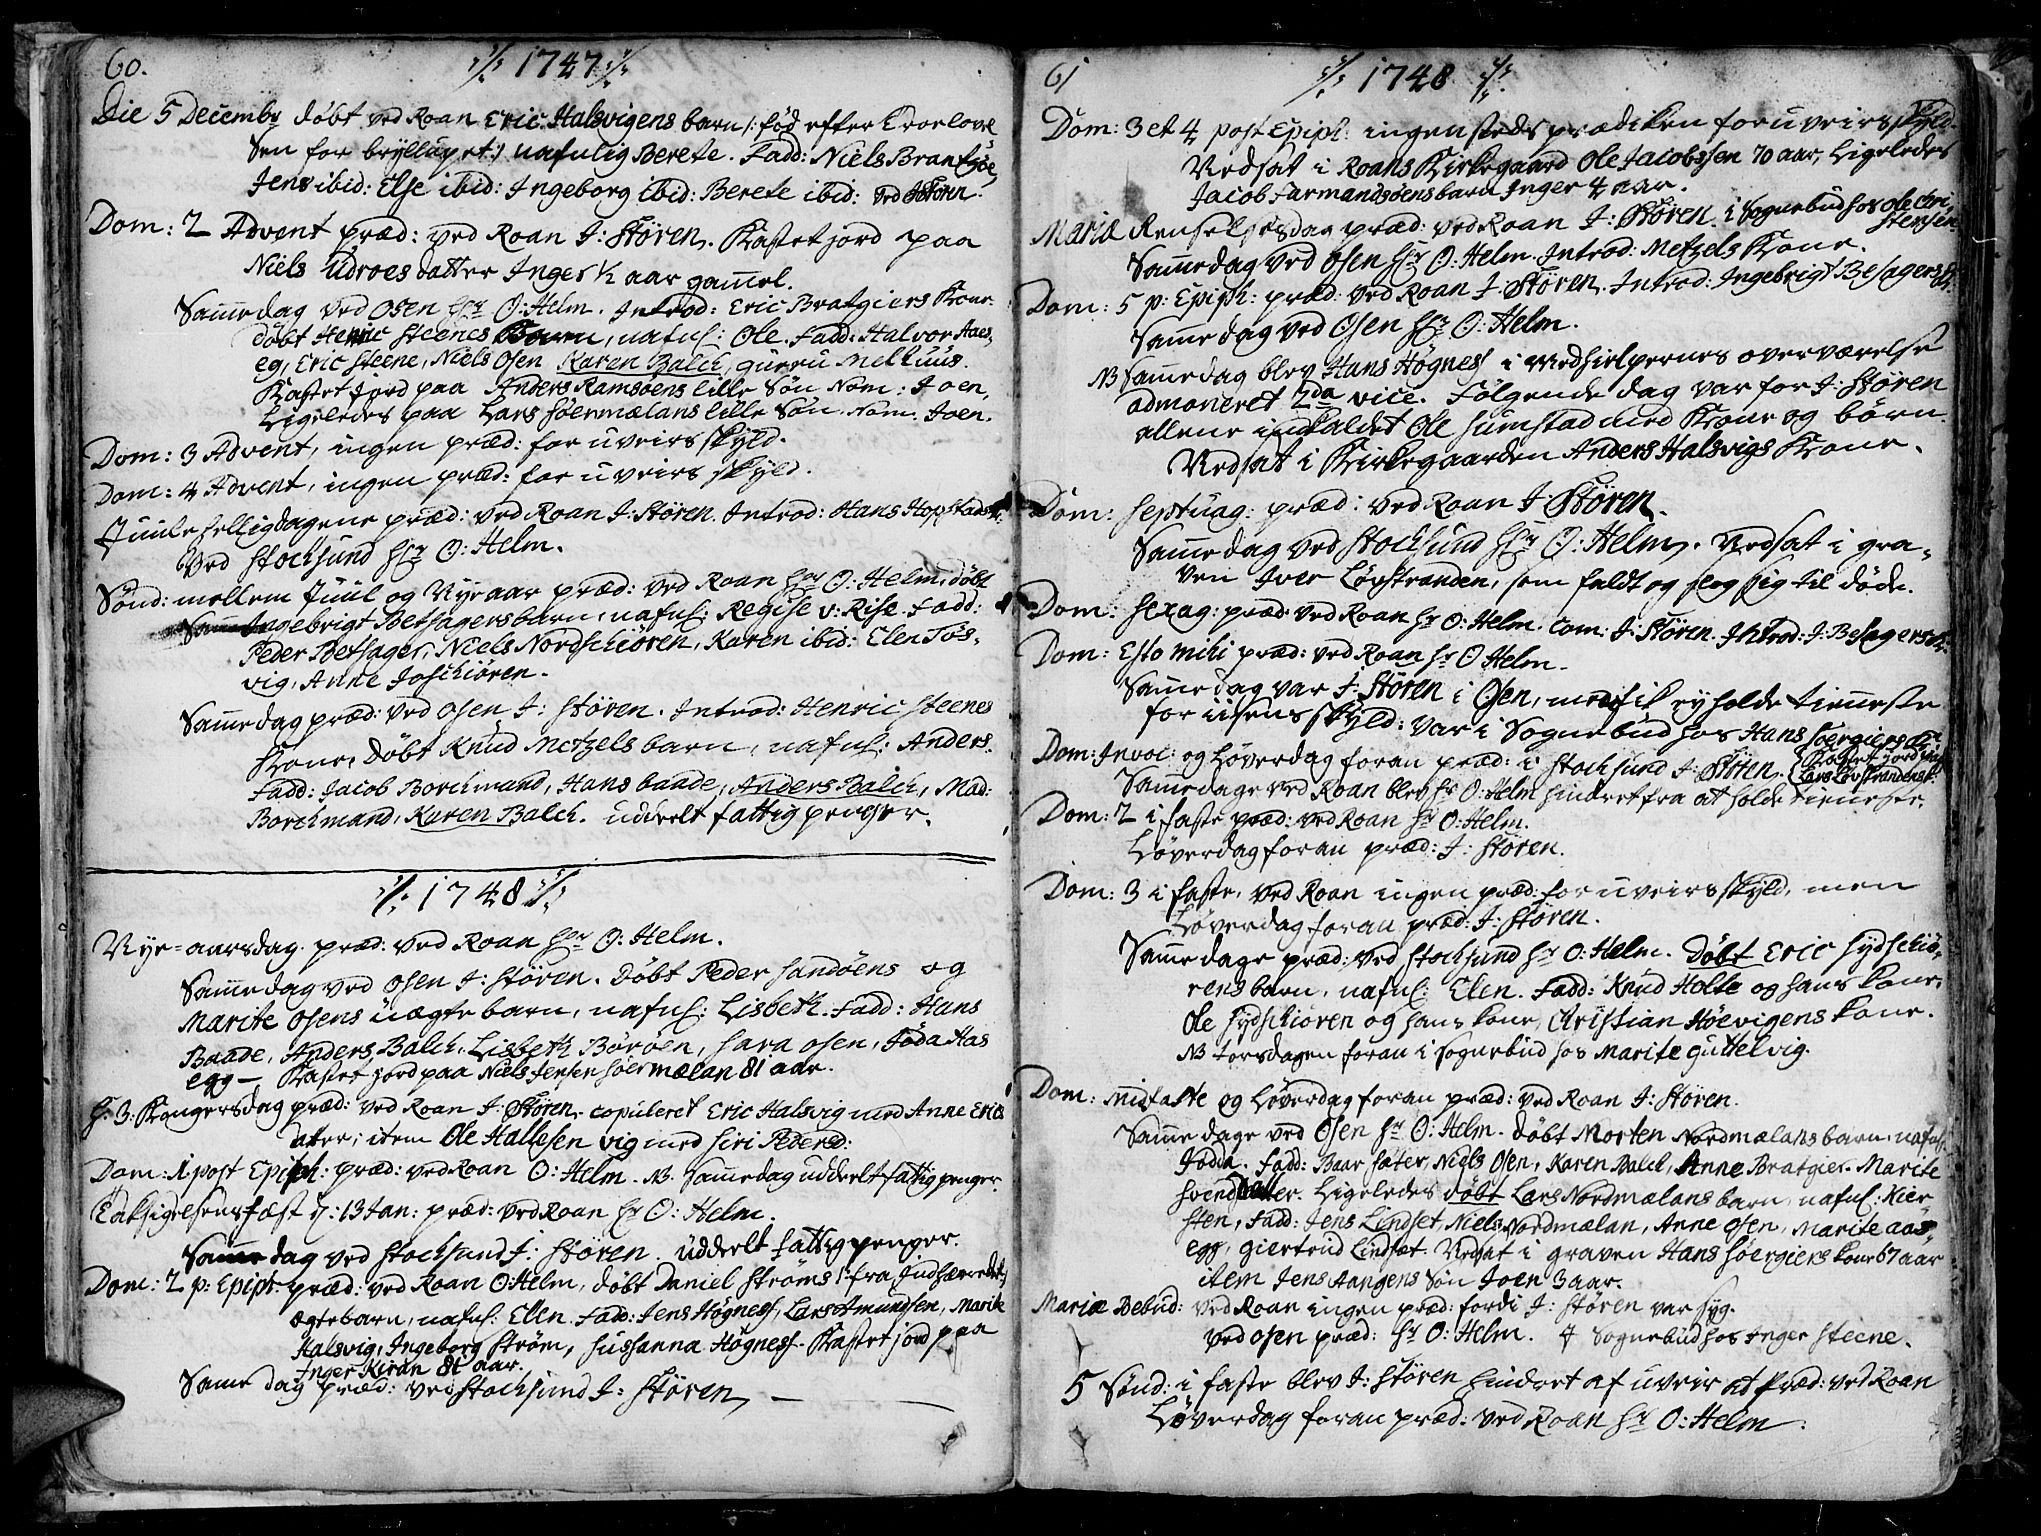 60.
1747
Die 5 Decembr døbt ved Roan Eric Halsvigens barn /: fød efter Troelovel
sen for brylluppet :/ nafnlig Berete. Fadd: Niels Brantzøe,
Jens ibid: Else ibid: Ingeborg ibid: Berete ibid: ved J: Støren
Dom: 2 Advent præd: ved Roan J: Støren. Kastet jord paa
Niels Udroes datter Inger ½ aar gam̄el.
Sam̄e dag ved Osen Hr O: Helm. Introd: Eric Bratgiers Kone
døbt Henric Steenes Barn, nafnl: Ole. Fadd: Halvor Aaes-
eg, Eric Steene, Niels Osen Karen Balch, gurru Melhuus.
Kastet Jord paa Anders Ramsøens lille Søn Nom: Joen,
Ligeledes paa Lars Søermælans lille Søn Nom: Joen.
Dom: 3 Advent, ingen præd: for uveirs skyld.
Dom: 4 Advent, ingen præd: for uveirs skyld.
Juule helligdagene præd: ved Roan J: Støren. Introd: Hans Hopstads K:
Ved Stochsund Hr O: Helm.
Sønd: mellem Juul og Nyeaar præd: ved Roan Hr O: Helm, døbt
Ingebrigt Besagers barn, nafnl: Regise v: Rise. Fadd:
Peder Besager, Niels Nordschiören, Karen ibid: Elen Tøs-
vig, Anne Joschiören.
Sam̄e dag præd: ved Osen J: Støren. Introd: Henric Steenes
Kone, Døbt Knud Metzels barn, nafnl: Anders.
Fadd: Jacob Borchmand, Hans baade, Anders Balch, Mad:
Borchmand, Karen Balch. uddeelt fattig penger.
1748
Nye-aarsdag præd: ved Roan Hr O: Helm.
Sam̄e dag ved Osen J: Støren. Døbt Peder Sandøens og
Marite Osens uægte barn, nafnl: Lisbeth. Fadd: Hans
Baade, Anders Balch, Lisbeth Börøen, Sara Osen, Föda Aas
egg — Kastet jord paa Niels Jensen Søermælan 81 aar.
H: 3: Kongersdag præd: ved Roan J: Støren, copuleret Eric Halsvig med Anne Erics
datter; item Ole Hallesen vig med Siri Pedersd:
Dom: 1 post Epiph: præd: ved Roan O: Helm. NB. sam̄e dag uddeelt fattig penger.
Taksigelsens fæst d: 13 Jan: præd: ved Roan Hr O: Helm.
Sam̄e dag ved Stochsund J: Støren. uddeelt fattig penger.
Dom: 2 p: Epiph: præd: ved Roan O: Helm, døbt Daniel Strøms /: fra Indherredet :/
ægte barn, nafnl: Ellen. Fadd: Jens Högness, Lars Amundsen, Marite
Halsvig, Ingeborg Strøm, Sussanna Högness. Kastet jord paa
Inger Kiran 81 aar.
Sam̄e dag præd: ved Stochsund J: Støren, —
61
1748
Dom: 3 et 4 post Epiph: ingen steds prædiken for uveirs skyld.
Nedsat i Roans Kirkegaard Ole Jacobssen 70 aar, Ligeledes
Jacob Sarmandsøens barn Inger 4 aar.
Mariæ Renselsesdag præd: ved Roan J: Støren. i Sognebud hos Ole Chri
stensen.
Sam̄e dag ved Osen Hr O: Helm. Introd: Metzels Kone.
Dom: 5 p: Epiph: præd: ved Roan J: Støren. Introd: Ingebrigt Besagers K:
Sam̄e dag ved Osen Hr O: Helm.
NB Sam̄e dag blev Hans Högness i Medhielpernes overværelse
admoneret 2da vice. Følgende dag var for J: Støren
allene indkaldet Ole Sumstad med Kone og børn.
Nedsat i Kirkegaarden Anders Halsvigs Kone.
Dom: Septuag: præd: ved Roan J: Støren.
Sam̄e dag ved Stochsund Hr O: Helm. Nedsat i gra-
ven Iver Lövstranden, som faldt og slog sig til døde.
Dom: Sexag: præd: ved Roan Hr O: Helm. Com: J: Støren. Introd: J: Besagers K:
Dom: Esto mihi præd: ved Roan Hr O Helm.
Sam̄e dag var J: Støren i Osen, men fik ey holde tieneste
for iisens skyld: var i Sognebud hos Hans Søergiers K:
Dom: Invoc: og Løverdag foran præd: i Stochsund J: Støren. Kastet Jord paa
Lars Lövstrandens K:
Sam̄e dage ved Roan blev Hr O: Helm hindret fra at holde tieneste.
Dom: 2 i faste præd: ved Roan Hr O: Helm.
Løverdag foran præd: J: Støren.
Dom: 3 i faste, ved Roan ingen præd: for uveirs skyld, men
Løverdag foran præd: J: Støren.
Sam̄e dage præd: ved Stochsund Hr O: Helm. Døbt Eric Sydschiö-
rens barn, nafnl: Elen. Fadd: Knud Holte og hans kone,
Ole Sydschioren og hans kone, Christian Höevigens kone.
NB Torsdagen foran i Sognebud hos Marite Guttelvig.
Dom: midfaste og Løverdag foran præd: ved Roan J: Støren.
Sam̄e dage ved Osen Hr O: Helm. Døbt Morten Nordmælans barn, nafnl:
Födda. Fadd: Baar Sæter, Niels Osen, Karen Balch, Anne Bratgier, Marite
Svendsdatter. Ligeledes døbt Lars Nordmælans barn, nafnl: Kier-
sten, Fadd: Jens Lindset, Niels Nordmælan, Anne Osen, Marite aas-
egg, giertrud Lindset. Nedsat i graven Hans Søergiers kone 67 aar
item Jens Aangens Søn Joen 3 aar.
Mariæ Bebud: ved Roan ingen præd: fordi J: Støren var syg.
Ved Osen præd: Hr O: Helm. I Sognebud hos Inger Steene.
5 Sønd: i faste blev J: Støren hindret af uveir at præd: ved Roan
Løverdag foran præd: ved Roan Hr O: Helm.